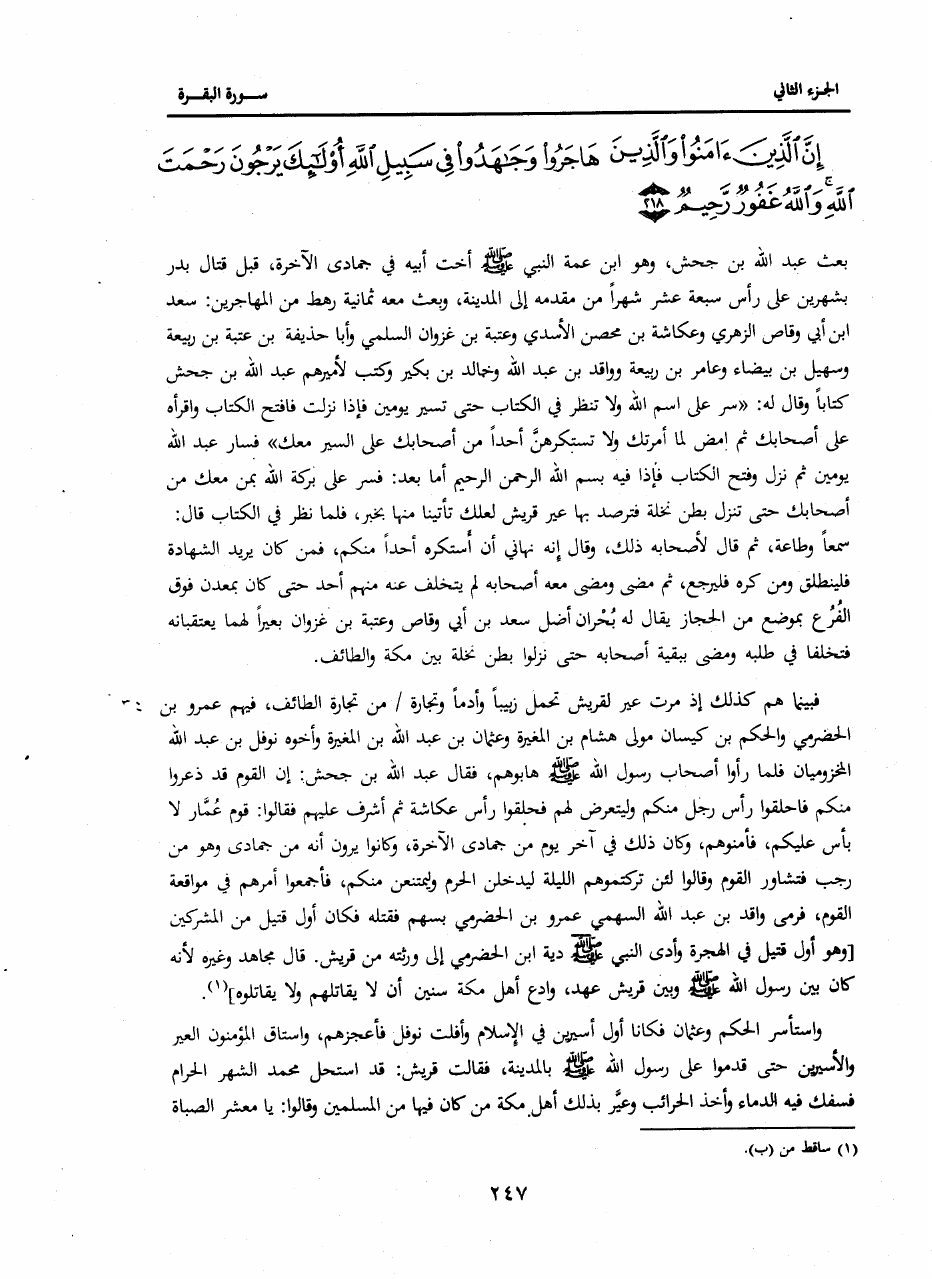 الجزء الثاني
سورة البقرة
إِنَّ ٱلَّذِينَ ءَامَنُوا۟ وَٱلَّذِينَ هَاجَرُوا۟ وَجَـٰهَدُوا۟ فِى سَبِيلِ ٱللَّهِ أُو۟لَـٰٓئِكَ يَرْجُونَ رَحْمَتَ
ٱللَّهِ ۚ وَٱللَّهُ غَفُورٌ رَّحِيمٌ ٢١٨
بعث عبد الله بن جحش، وهو ابن عمة النبي ﷺ أخت أبيه في جمادى الآخرة، قبل قتال بدر
بشهرين على رأس سبعة عشر شهراً من مقدمه إلى المدينة، وبعث معه ثمانية رهط من المهاجرين: سعد
ابن أبي وقاص الزهري وعكاشة بن محصن الأسدي وعتبة بن غزوان السلمي وأبا حذيفة بن عتبة بن ربيعة
وسهيل بن بيضاء وعامر بن ربيعة وواقد بن عبد الله وخالد بن بكير وكتب لأميرهم عبد الله بن جحش
كتاباً وقال له: «سر على اسم الله ولا تنظر في الكتاب حتى تسير يومين فإذا نزلت فافتح الكتاب واقرأه
على أصحابك ثم امض لما أمرتك ولا تستكرهنَّ أحداً من أصحابك على السير معك» فسار عبد الله
يومين ثم نزل وفتح الكتاب فإذا فيه بسم الله الرحمن الرحيم أما بعد: فسر على بركة الله بمن معك من
أصحابك حتى تنزل بطن نخلة فترصد بها عير قريش لعلك تأتينا منها بخبر، فلما نظر في الكتاب قال:
سمعاً وطاعة، ثم قال لأصحابه ذلك، وقال إنه نهاني أن أستكره أحداً منكم، فمن كان يريد الشهادة
فلينطلق ومن كره فليرجع، ثم مضى ومضى معه أصحابه لم يتخلف عنه منهم أحد حتى كان بمعدن فوق
الفُرُع بموضع من الحجاز يقال له بُحْران أضل سعد بن أبي وقاص وعتبة بن غزوان بعيراً لهما يعتقبانه
فتخلفا في طلبه ومضى ببقية أصحابه حتى نزلوا بطن نخلة بين مكة والطائف.
فبينما هم كذلك إذ مرت عير لقريش تحمل زبيباً وأدماً وتجارة / من تجارة الطائف، فيهم عمرو بن
الحضرمي والحكم بن كيسان مولى هشام بن المغيرة وعثمان بن عبد الله بن المغيرة وأخوه نوفل بن عبد الله
المخزوميان فلما رأوا أصحاب رسول الله ﷺ هابوهم، فقال عبد الله بن جحش: إن القوم قد ذعروا
منكم فاحلقوا رأس رجل منكم وليتعرض لهم فحلقوا رأس عكاشة ثم أشرف عليهم فقالوا: قوم عُمَّار لا
بأس عليكم، فأمنوهم، وكان ذلك في آخر يوم من جمادى الآخرة، وكانوا يرون أنه من جمادى وهو من
رجب فتشاور القوم وقالوا لئن تركتموهم الليلة ليدخلن الحرم وليمتنعن منكم، فأجمعوا أمرهم في مواقعة
القوم، فرمى واقد بن عبد الله السهمي عمرو بن الحضرمي بسهم فقتله فكان أول قتيل من المشركين
[وهو أول قتيل في الهجرة وأدى النبي ﷺ دية ابن الحضرمي إلى ورثته من قريش. قال مجاهد وغيره لأنه
كان بين رسول الله ﷺ وبين قريش عهد، وادع أهل مكة سنين أن لا يقاتلهم ولا يقاتلوه](١).
واستأسر الحكم وعثمان فكانا أول أسيرين في الإسلام وأفلت نوفل فأعجزهم، واستاق المؤمنون العير
والأسيرين حتى قدموا على رسول الله ﷺ بالمدينة، فقالت قريش: قد استحل محمد الشهر الحرام
فسفك فيه الدماء وأخذ الحرائب وعيَّر بذلك أهل مكة من كان فيها من المسلمين وقالوا: يا معشر الصباة
(١) ساقط من (ب).
٢٤٧